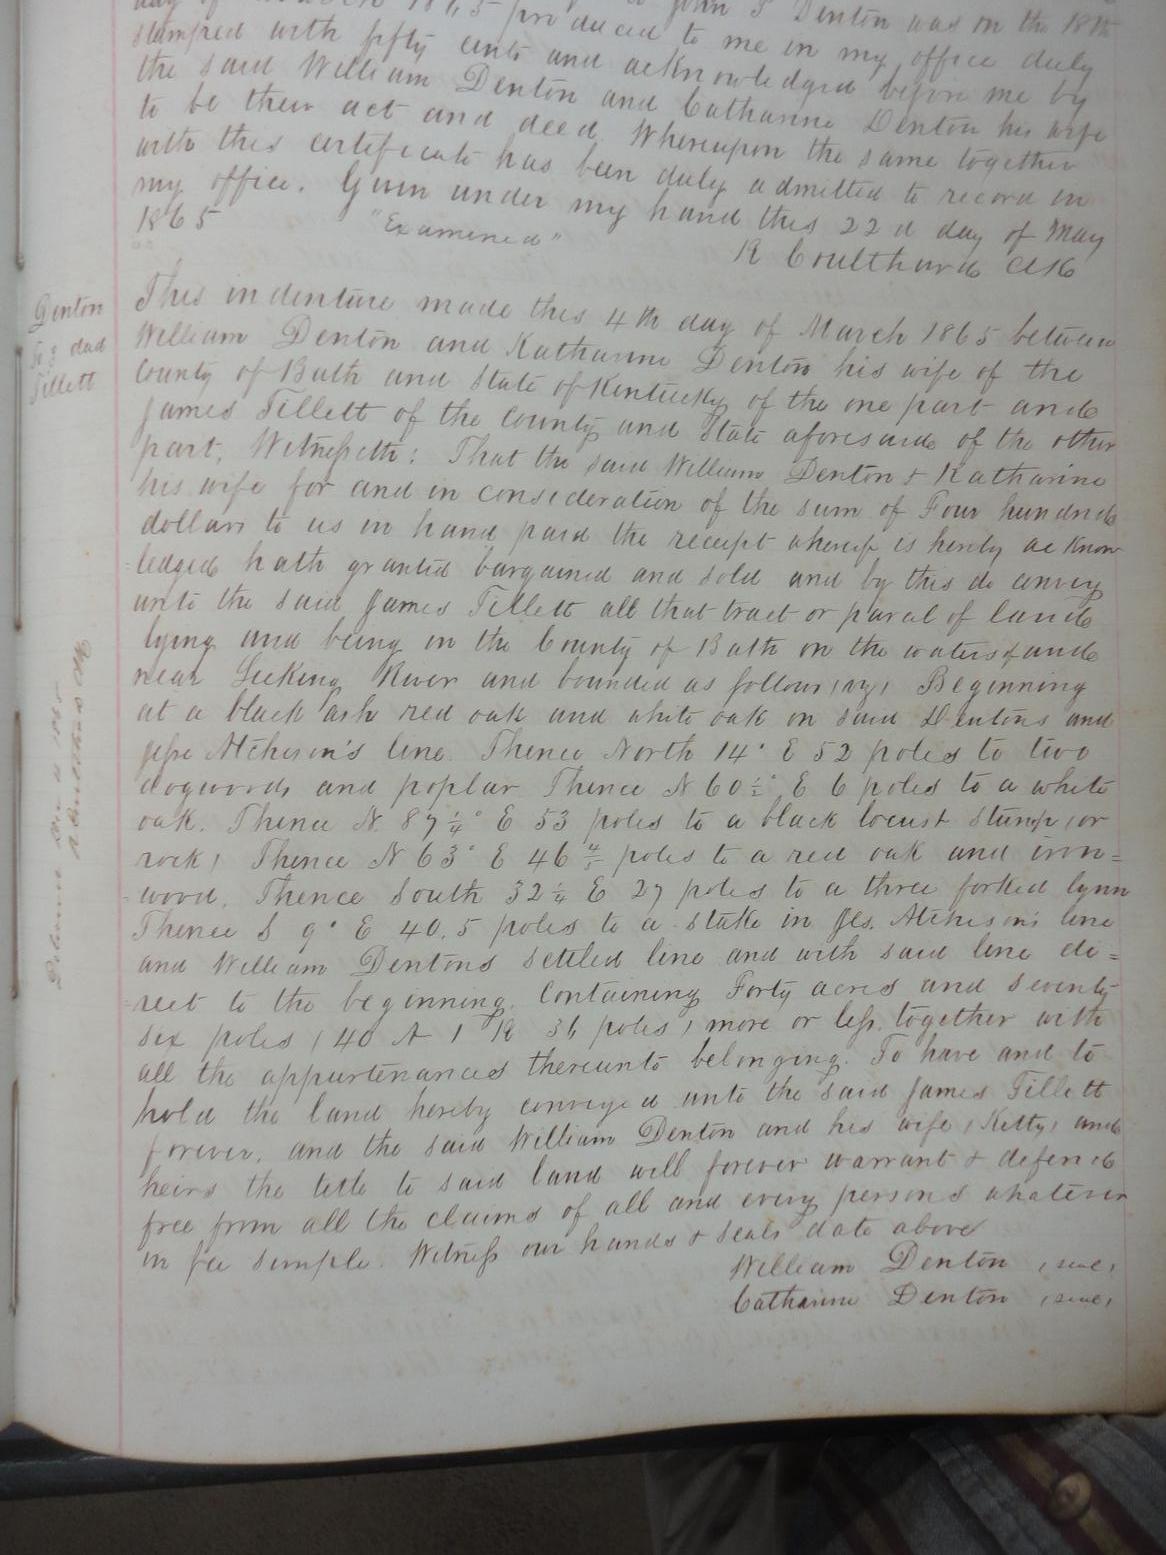 day of March 1865 produced to John S Denton was on the 18th
stamped with fifty cents and acknowledged before me by
the said William Denton and Catharine Denton his wife
to be their act and deed. Whereupon the same together
with this certificate has been duly admitted to record in
my office. Given under my hand this 22d day of May
1865 "Examined"
R Coulthard Clk
Denton
To } deed
Tillett
This indenture made this 4th day of March 1865 between
William Denton and Katharine Denton his wife of the
County of Bath and State of Kentucky of the one part and
James Tillett of the County and State aforesaid of the other
part, Witnesseth: That the said William Denton & Katharine
his wife for and in consideration of the sum of Four hundred
dollars to us in hand paid the receipt whereof is hereby acknow
=ledged hath granted bargained and sold and by this do convey
unto the said James Tillett all that tract or parcal of land
lying and being in the County of Bath on the waters of and
near Licking River and bounded as follows, (viz) Beginning
at a black ash red oak and white oak on said Dentons and
Jesse Atchison's line. Thence North 14° E 52 poles to two
dogwoods and poplar Thence N 60 1/2° E 6 poles to a white
oak. Thence N. 87 1/4° E 53 poles to a black locust stump (or
rock) Thence N 63° E 46 4/5 poles to a red oak and iron=
=wood. Thence South 32 1/4 E 27 poles to a three forked lynn
Thence S 9° E 40.5 poles to a stake in Jes. Atchison's line
and William Dentons settled line and with said line di=
=rect to the beginning. Containing Forty acres and seventy
six poles (40 A 1 R 36 poles) more or less, together with
all the appurtenances thereunto belonging. To have and to
hold the land hereby conveyed unto the said James Tillett
forever, and the said William Denton and his wife (Kitty) and
heirs the title to said land will forever warrant & defend
free from all the claims of all and every persons whatever
in fee simple. Witness our hands & seals date above
William Denton (seal)
Catharine Denton (seal)